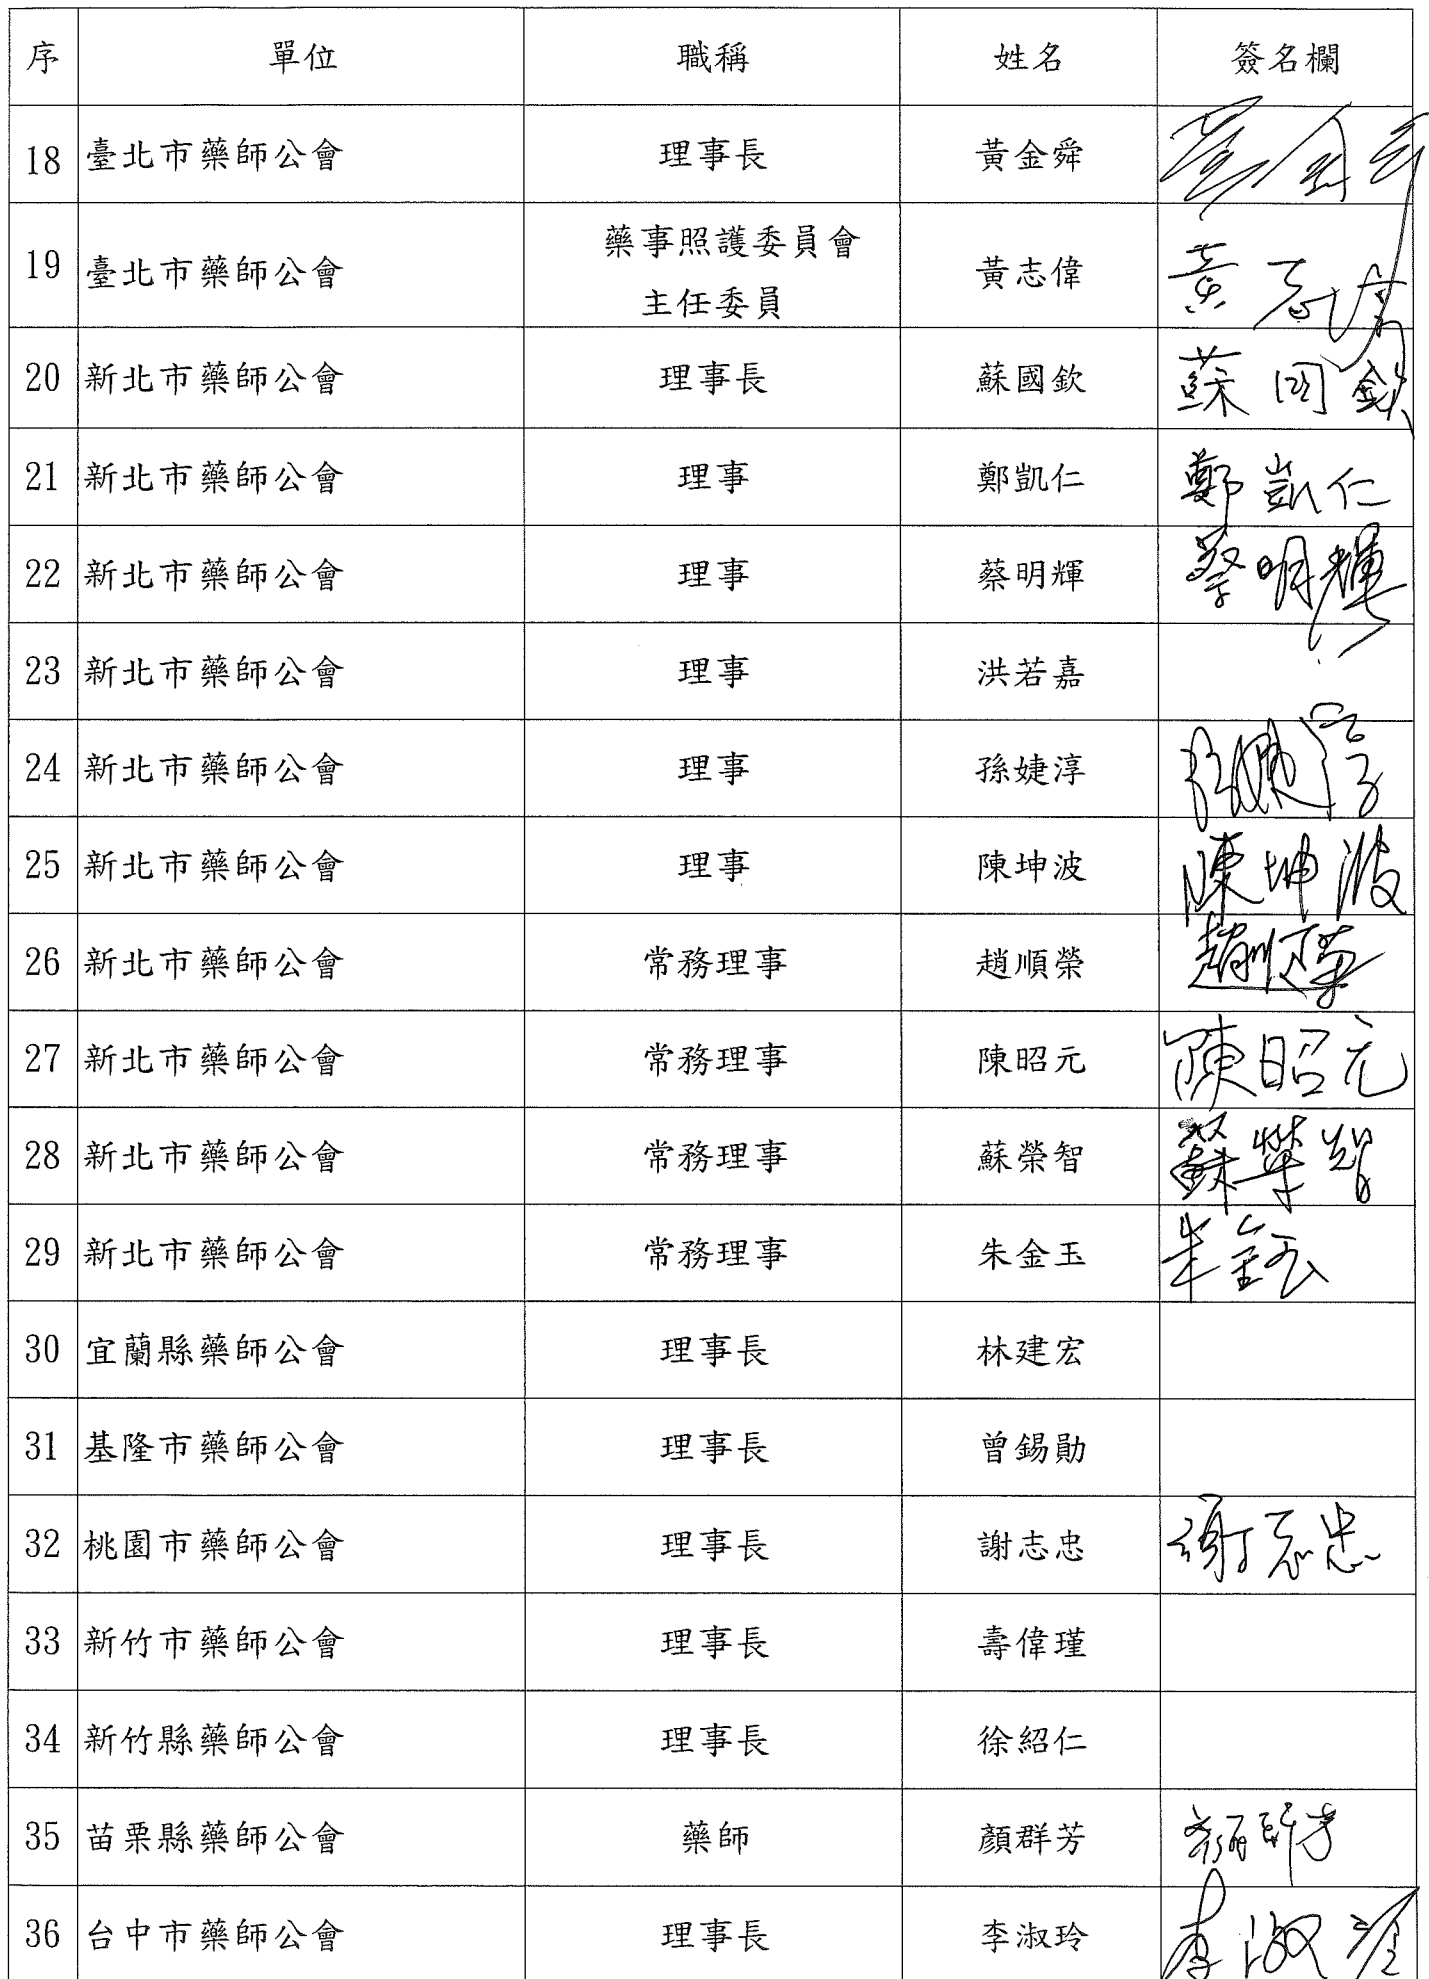 序 單位 職稱 姓名 簽名欄
18 臺北市藥師公會 理事長 黃金舜 黃金舜
19 臺北市藥師公會 藥事照護委員會 主任委員 黃志偉 黃志偉
20 新北市藥師公會 理事長 蘇國欽 蘇国欽
21 新北市藥師公會 理事 鄭凱仁 鄭凱仁
22 新北市藥師公會 理事 蔡明輝 蔡明輝
23 新北市藥師公會 理事 洪若嘉
24 新北市藥師公會 理事 孫婕淳 孫婕淳
25 新北市藥師公會 理事 陳坤波 陳坤波
26 新北市藥師公會 常務理事 趙順榮 趙順榮
27 新北市藥師公會 常務理事 陳昭元 陳昭元
28 新北市藥師公會 常務理事 蘇榮智 蘇榮智
29 新北市藥師公會 常務理事 朱金玉 朱金玉
30 宜蘭縣藥師公會 理事長 林建宏
31 基隆市藥師公會 理事長 曾錫勛
32 桃園市藥師公會 理事長 謝志忠 謝志忠
33 新竹市藥師公會 理事長 壽偉瑾
34 新竹縣藥師公會 理事長 徐紹仁
35 苗栗縣藥師公會 藥師 顏群芳 顏群芳
36 台中市藥師公會 理事長 李淑玲 李淑玲